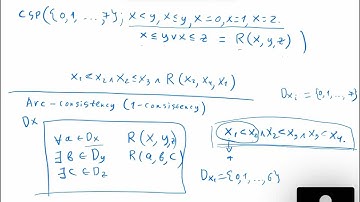 CSP({0,1,...,7}; x<y, x≤y, x=0, x=1, x=2.
x≤y∨x≤z = R(x,y,z))
x₁<x₂∧x₂≤x₃∧R(x₂,x₄,x₁)
Arc-consistency (1-consistency)
Dx
∀a∈Dx R(x,y,z)
∃b∈Dy R(a,b,c)
∃c∈Dz
Dxᵢ={0,1,...,7}
x₁<x₂∧x₂<x₃∧x₃<x₄.
Dx₁={0,1,...,6}